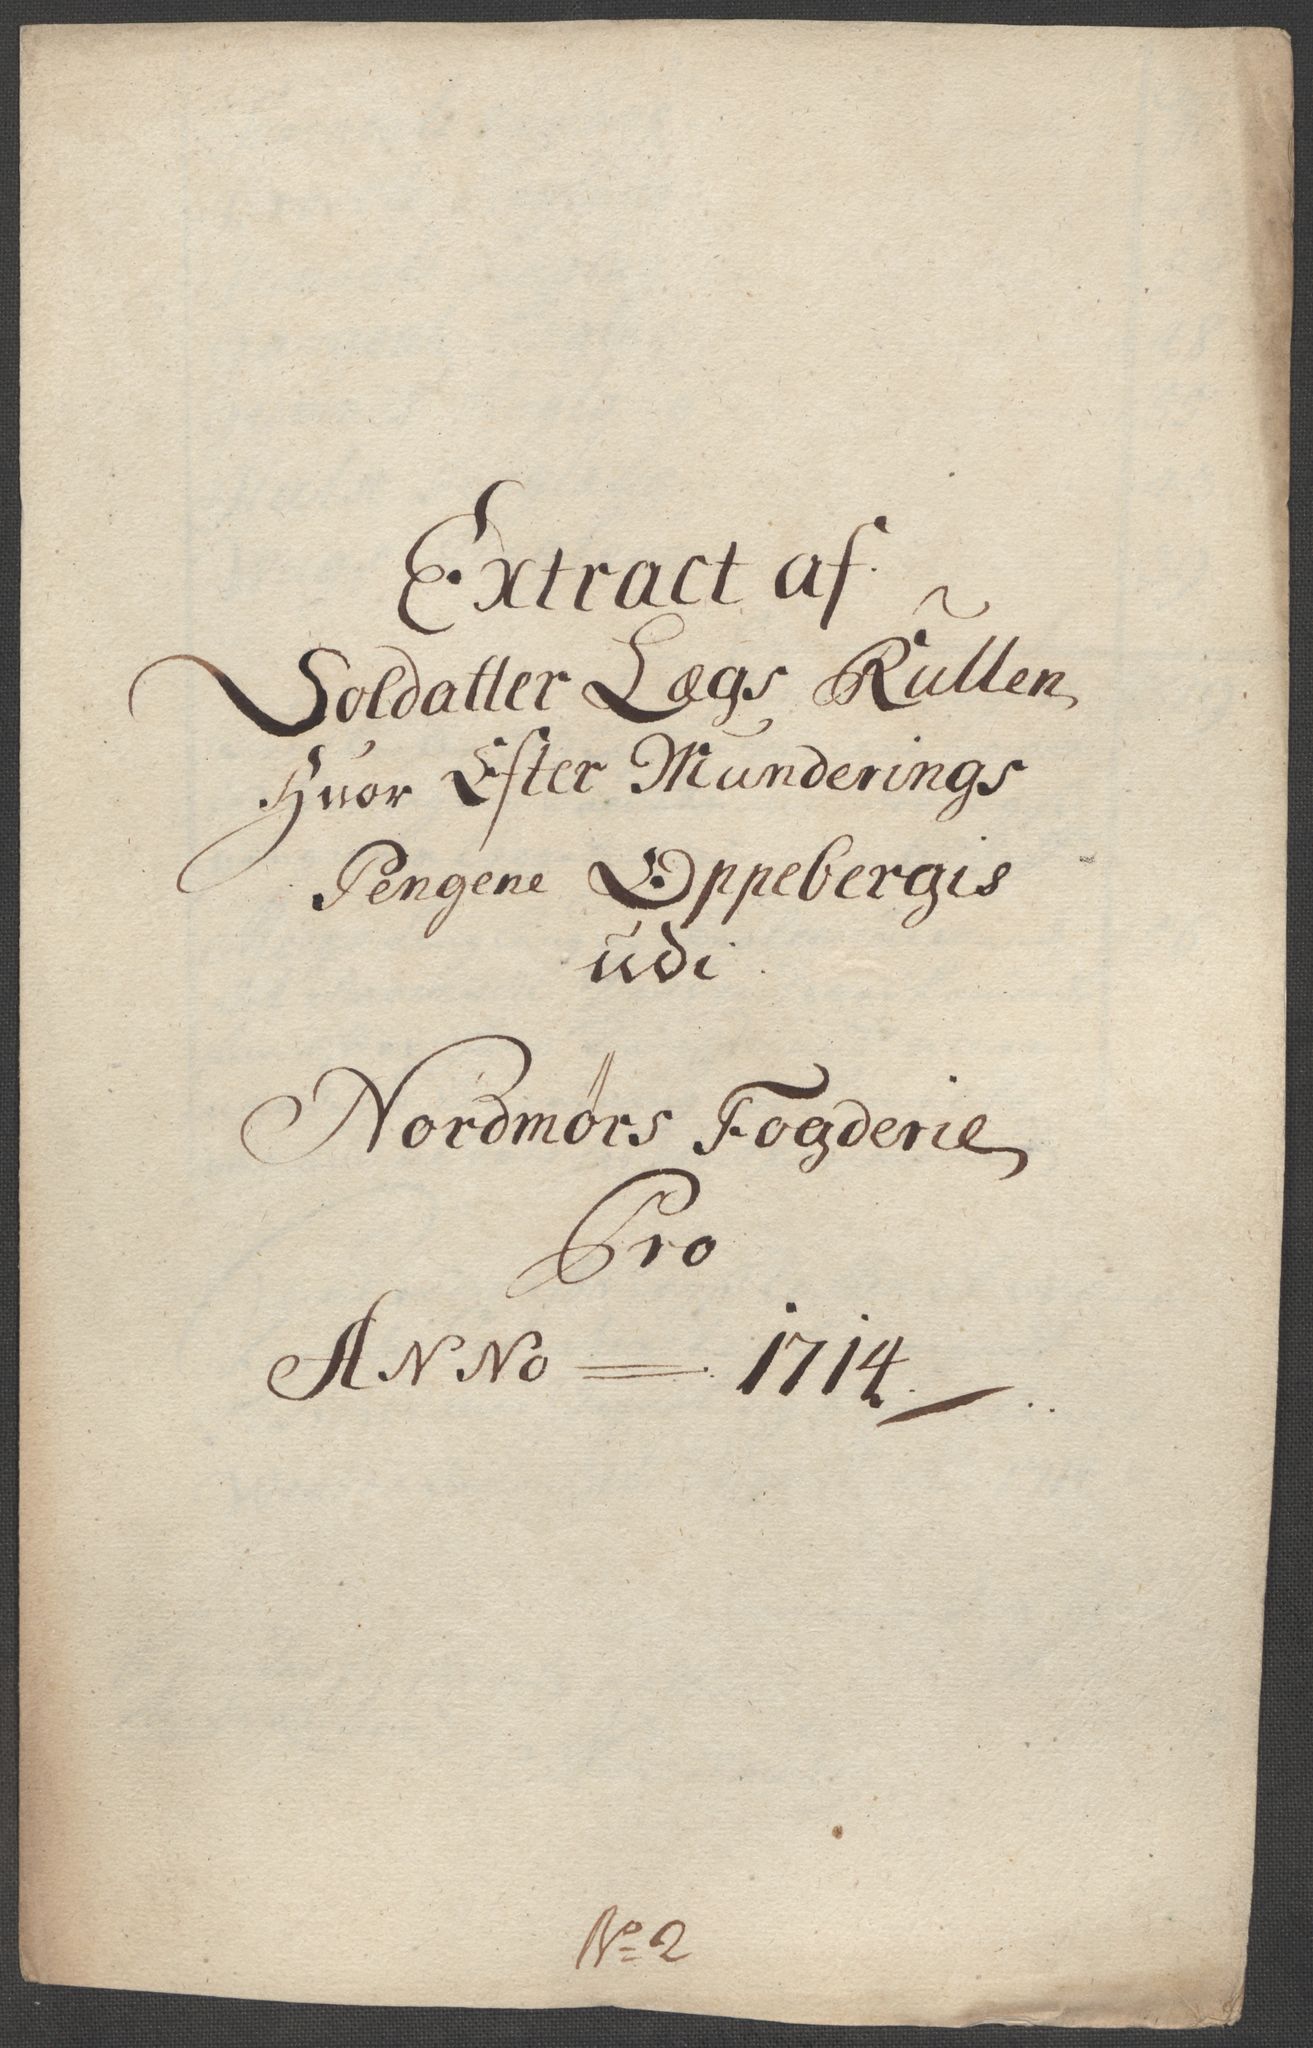 Extract af
Soldatter Lægs Rullen
Huor Efter Munderings
Pengene Oppebergis
udi
Nordmørs Fogderie
Pro
ANNo = 1714.
No 2